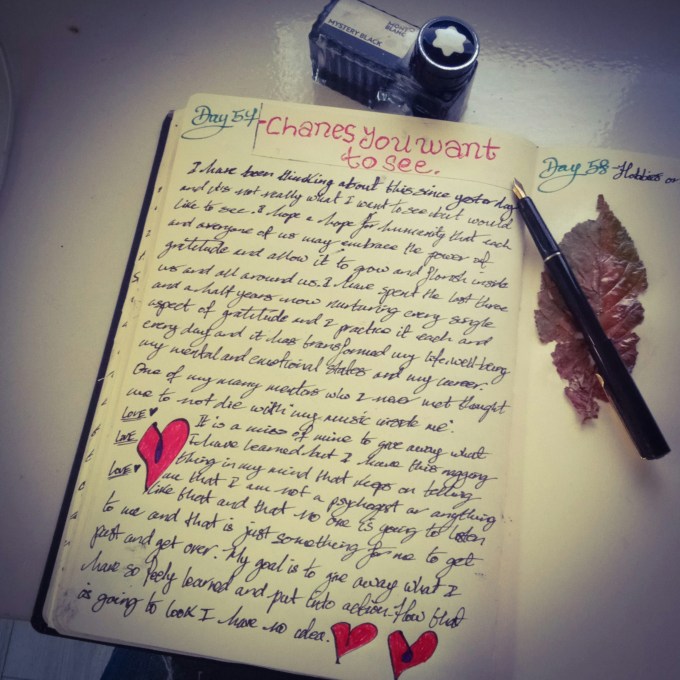 MONT
BLANC
MYSTERY BLACK
Day 54 - Chanes You want
to see.
I have been thinking about this since yesterday
and it's not really what I want to see but would
like to see. I hope a hope for humanity that each
and everyone of us may embrace the power of
gratitude and allow it to grow and florish inside
us and all around us. I have spent the last three
and a half years now nurturing every single
aspect of gratitude and I practice it each and
every day and it has transformed my life, well-being
my mental and emotional states and my career.
One of my many mentors who I never met thought
me to not die with my music inside me.
LOVE It is a miss of mine to give away what
LOVE I have learned but I have this nagging
LOVE thing in my mind that keeps on telling
me that I am not a psycholgist or anything
like that and that no one is going to listen
to me and that is just something for me to get
past and get over. My goal is to give away what I
have so freely learned and put into action. How that
is going to look I have no idea.
Day 58 - Hobbies or